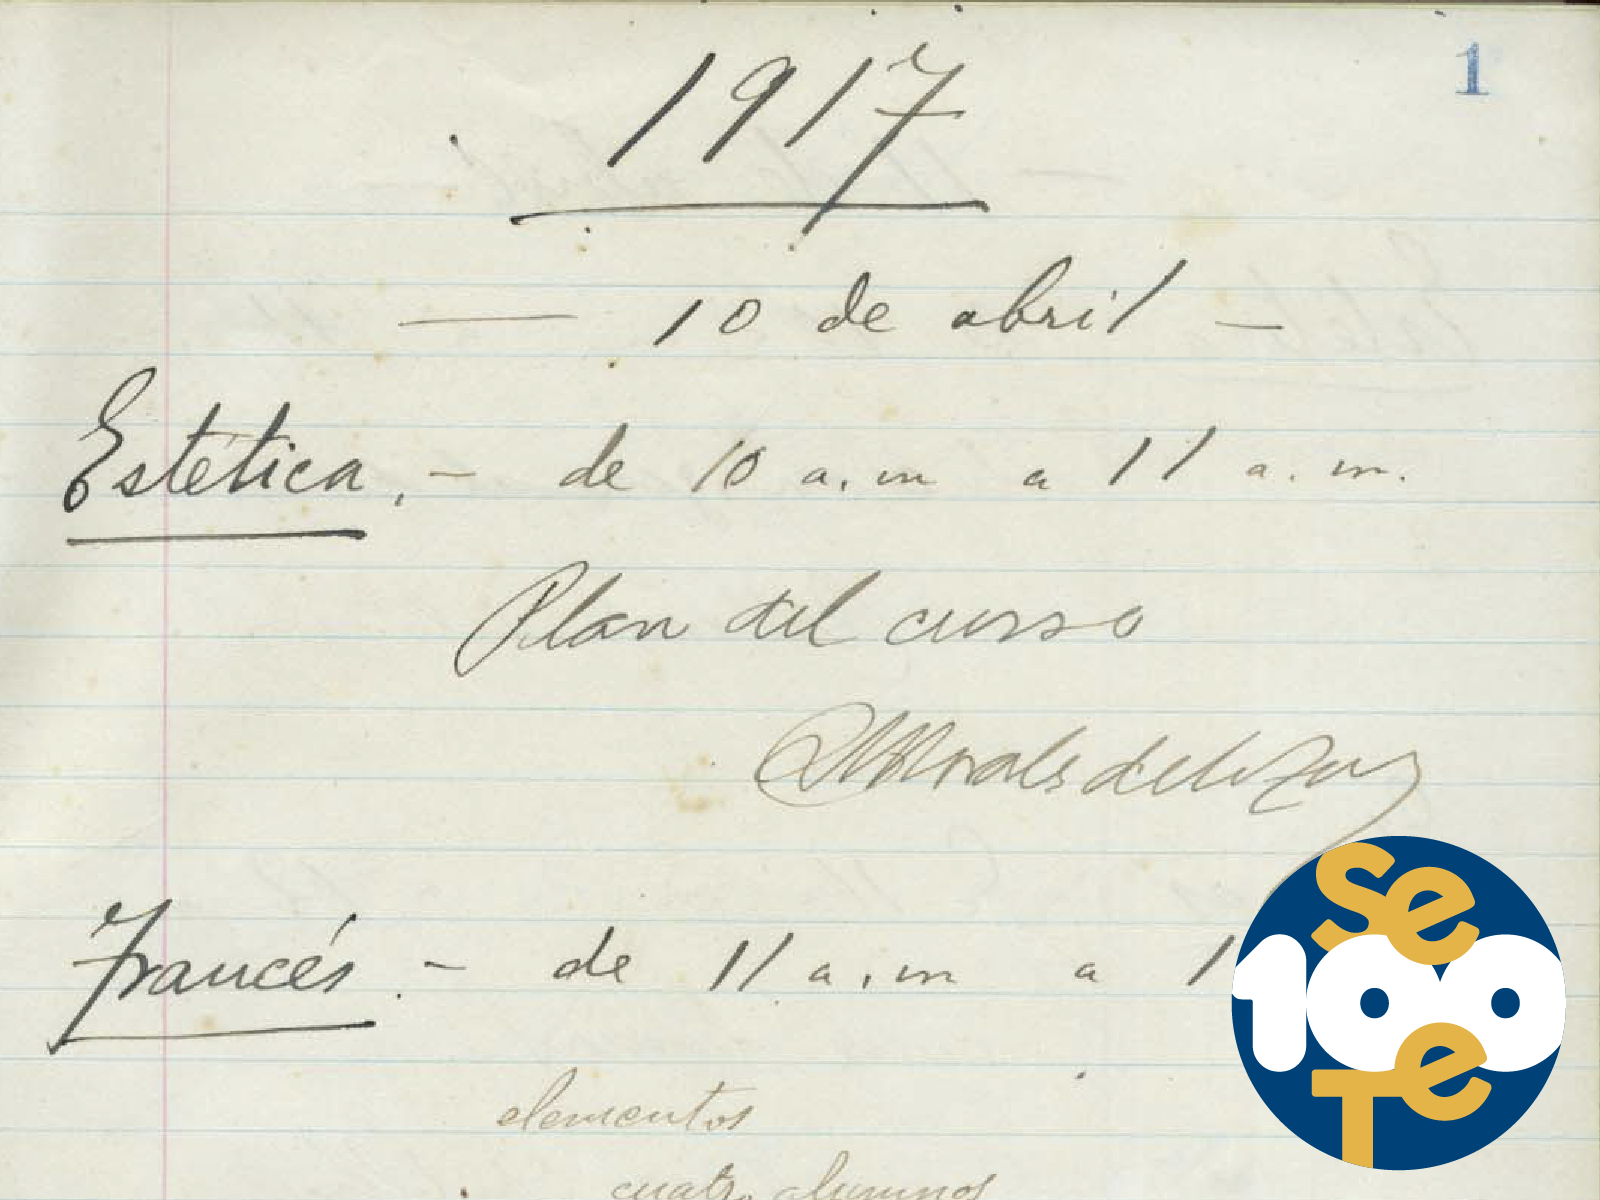 1
1917
— 10 de abril —
Estética.- de 10 a.m a 11 a.m.
Plan del curso
Morales de los
Francés.- de 11 a.m a 1
elementos
cuatro alumnos
Se
100
Te